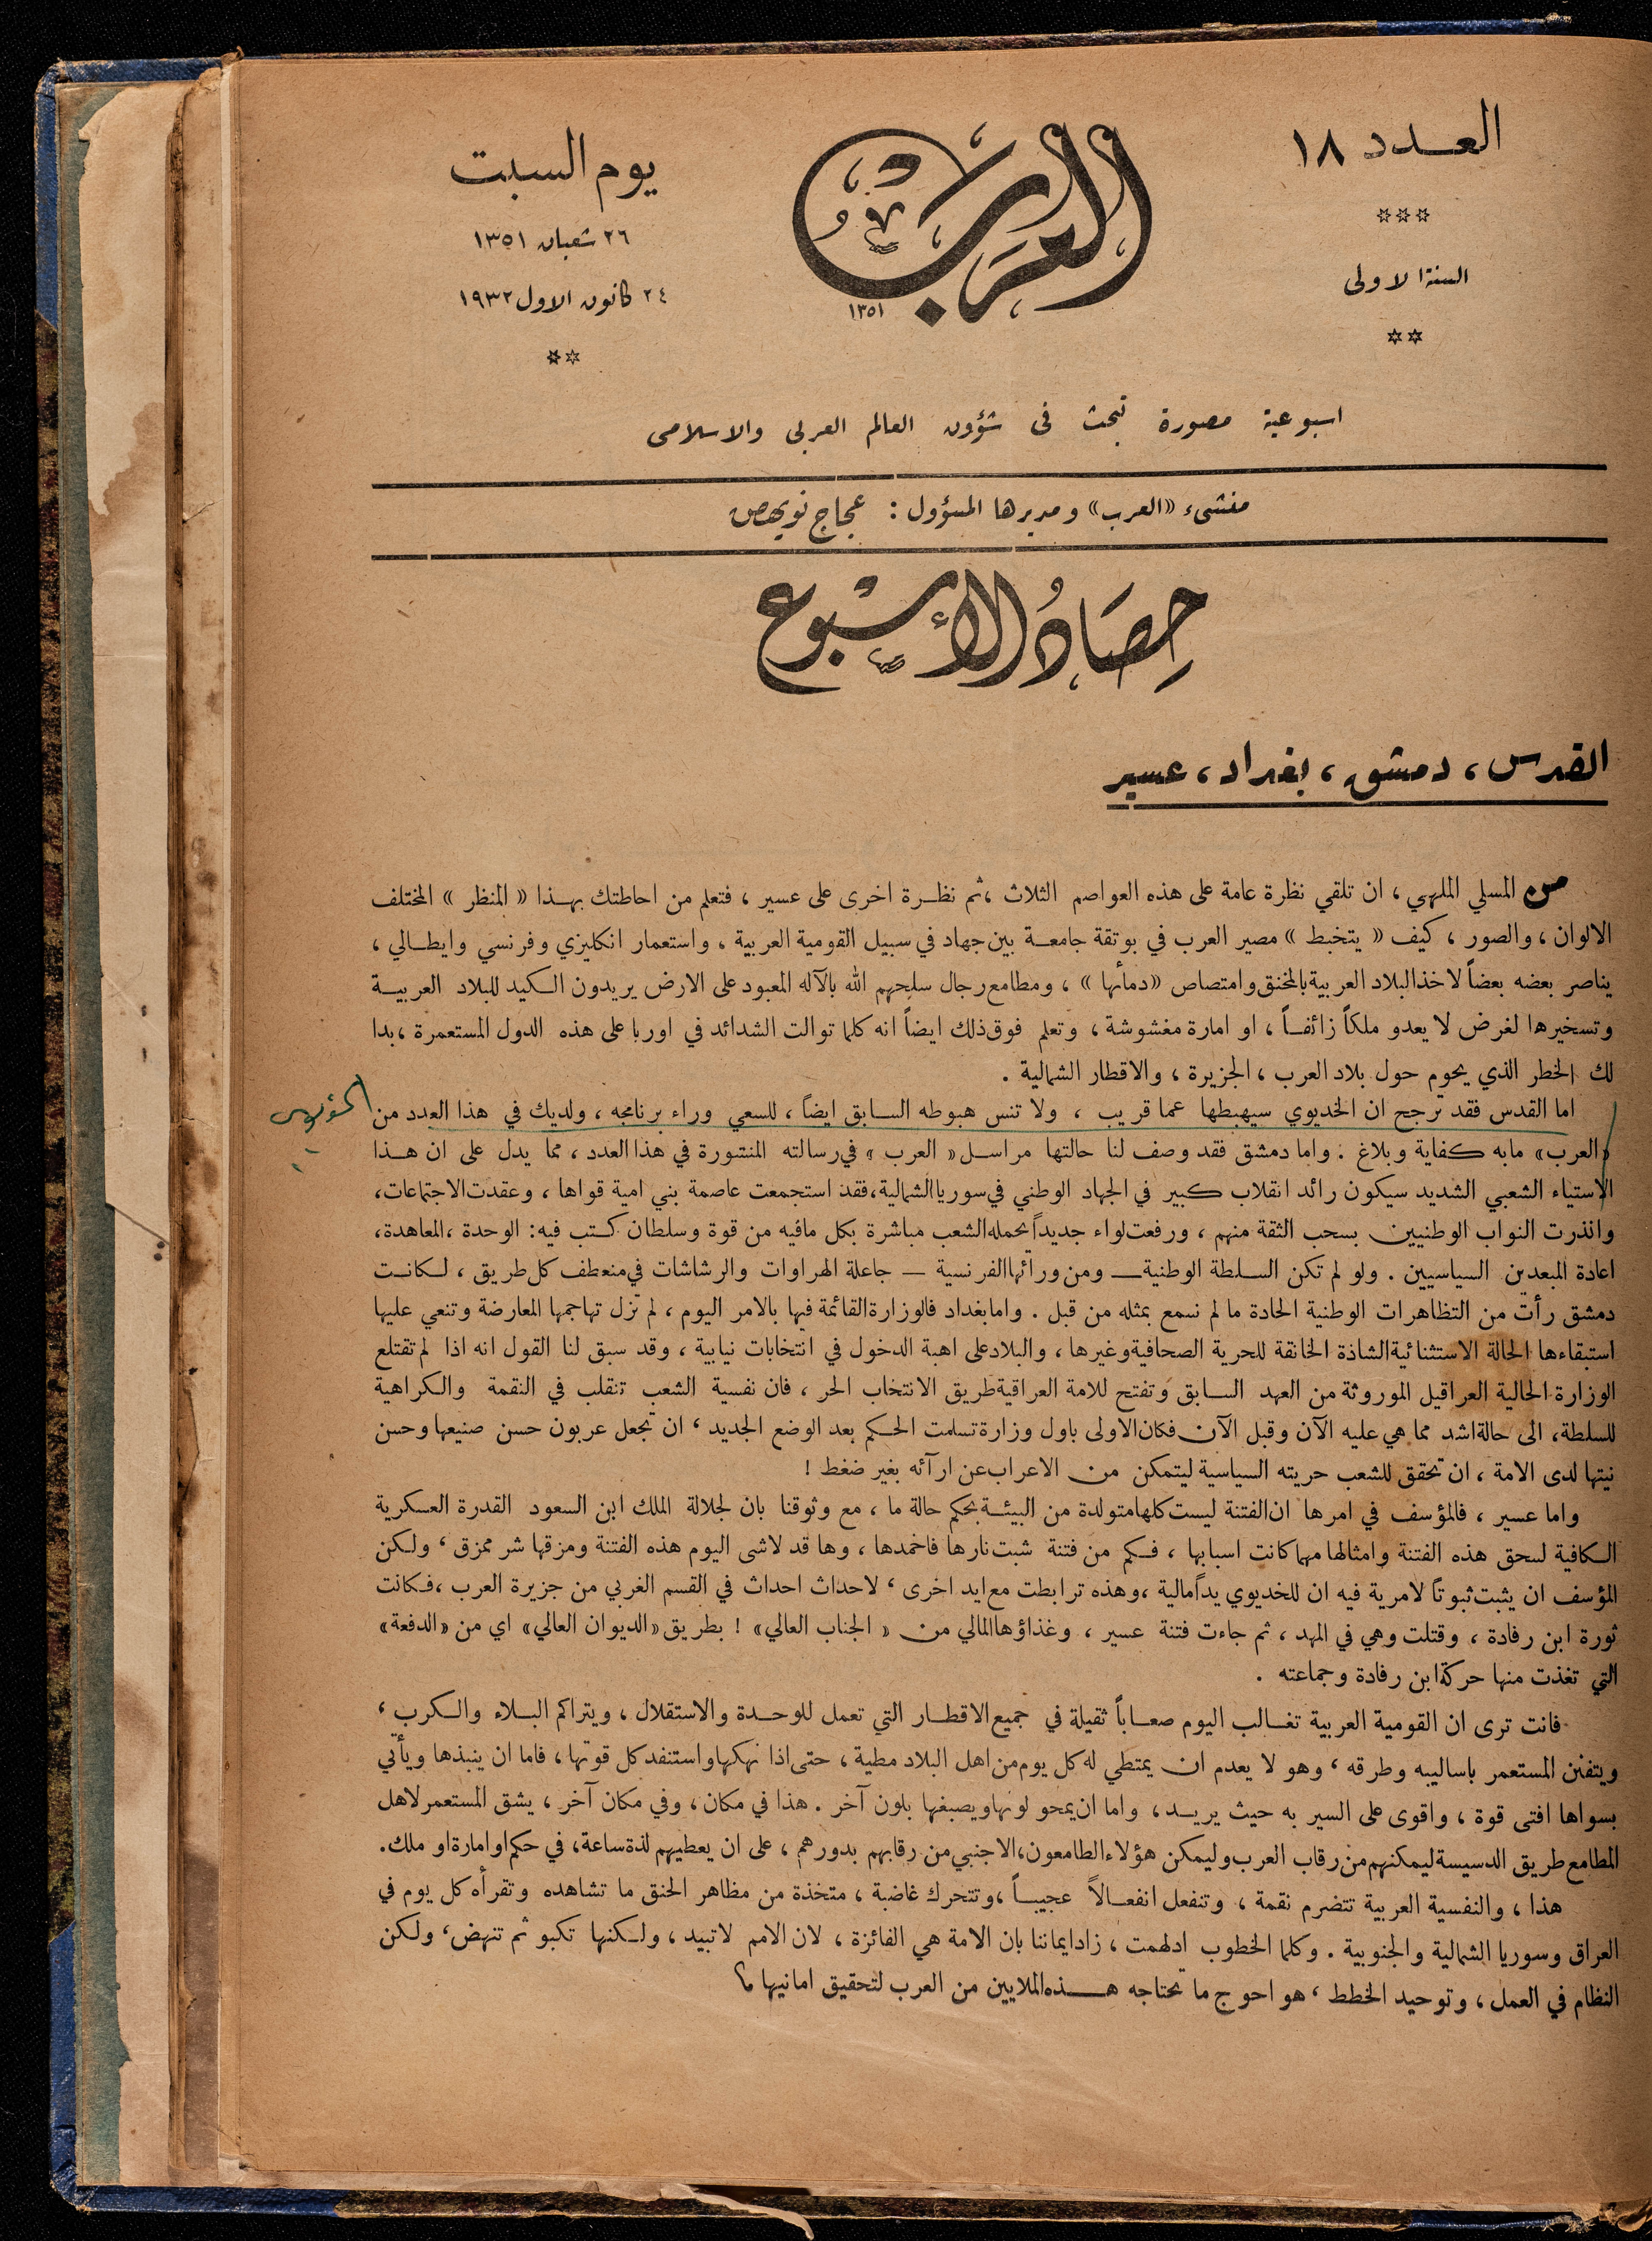 العدد ١٨
السنة الاولى
العرب
١٣٥١
يوم السبت
٢٦ شعبان ١٣٥١
٢٤ كانون الاول ١٩٣٢
اسبوعية مصورة تبحث فى شؤون العالم العربى والاسلامى
منشىء «العرب» ومديرها المسؤول : عجاج نويهض
حِصَادُ الأسْبوع
القدس ، دمشق ، بغداد ، عسير
من المسلي الملهي ، ان تلقي نظرة عامة على هذه العواصم الثلاث ، ثم نظرة اخرى على عسير ، فتعلم من احاطتك بهذا « المنظر » المختلف
الالوان ، والصور ، كيف « يتخبط » مصير العرب في بوتقة جامعة بين جهاد في سبيل القومية العربية ، واستعمار انكليزي وفرنسي وايطالي ،
يناصر بعضه بعضاً لاخذ البلاد العربية بالمخنق وامتصاص «دمائها » ، ومطامع رجال سلحهم الله بالآله المعبود على الارض يريدون الكيد للبلاد العربية
وتسخيرها لغرض لا يعدو ملكاً زائفاً ، او امارة مغشوشة ، وتعلم فوق ذلك ايضاً انه كلما توالت الشدائد في اوربا على هذه الدول المستعمرة ، بدا
لك الخطر الذي يحوم حول بلاد العرب ، الجزيرة ، والاقطار الشمالية .
اما القدس فقد ترجح ان الخديوي سيهبطها عما قريب ، ولا تنس هبوطه السابق ايضاً ، للسعي وراء برنامجه ، ولديك في هذا العدد من
«العرب» مابه كفاية وبلاغ . واما دمشق فقد وصف لنا حالتها مراسل « العرب » في رسالته المنشورة في هذا العدد ، مما يدل على ان هذا
الاستياء الشعبي الشديد سيكون رائد انقلاب كبير في الجهاد الوطني في سوريا الشمالية ، فقد استجمعت عاصمة بني امية قواها ، وعقدت الاجتماعات ،
وانذرت النواب الوطنيين بسحب الثقة منهم ، ورفعت لواء جديداً يحمله الشعب مباشرة بكل مافيه من قوة وسلطان كتب فيه : الوحدة ، المعاهدة ،
اعادة المبعدين السياسيين . ولو لم تكن السلطة الوطنية — ومن ورائها الفرنسية — جاعلة الهراوات والرشاشات في منعطف كل طريق ، لكانت
دمشق رأت من التظاهرات الوطنية الحادة ما لم نسمع بمثله من قبل . واما بغداد فالوزارة القائمة فيها بالامر اليوم ، لم تزل تهاجمها المعارضة وتنعي عليها
استبقاءها الحالة الاستثنائية الشاذة الخانقة للحرية الصحافية وغيرها ، والبلاد على اهبة الدخول في انتخابات نيابية ، وقد سبق لنا القول انه اذا لم تقتلع
الوزارة الحالية العراقيل الموروثة من العهد السابق وتفتح للامة العراقية طريق الانتخاب الحر ، فان نفسية الشعب تنقلب في النقمة والكراهية
للسلطة ، الى حالة اشد مما هي عليه الآن وقبل الآن فكان الاولى باول وزارة تسلمت الحكم بعد الوضع الجديد ، ان تجعل عربون حسن صنيعها وحسن
نيتها لدى الامة ، ان تحقق للشعب حريته السياسية ليتمكن من الاعراب عن ارآئه بغير ضغط !
واما عسير ، فالمؤسف في امرها ان الفتنة ليست كلها متولدة من البيئة بحكم حالة ما ، مع وثوقنا بان لجلالة الملك ابن السعود القدرة العسكرية
الكافية لسحق هذه الفتنة وامثالها مهما كانت اسبابها ، فكم من فتنة شبت نارها فاخمدها ، وها قد لاشى اليوم هذه الفتنة ومزقها شر ممزق ، ولكن
المؤسف ان يثبت ثبوتاً لامرية فيه ان للخديوي يداً مالية ، وهذه ترابطت مع ايد اخرى ، لاحداث احداث في القسم الغربي من جزيرة العرب ، فكانت
ثورة ابن رفادة ، وقتلت وهي في المهد ، ثم جاءت فتنة عسير ، وغذاؤها المالي من « الجناب العالي» ! بطريق «الديوان العالي» اي من «الدفعة»
التي تغذت منها حركة ابن رفادة وجماعته .
فانت ترى ان القومية العربية تغالب اليوم صعاباً ثقيلة في جميع الاقطار التي تعمل للوحدة والاستقلال ، ويتراكم البلاء والكرب ،
ويتفنن المستعمر باساليبه وطرقه ، وهو لا يعدم ان يمتطي له كل يوم من اهل البلاد مطية ، حتى اذا نهكها واستنفد كل قوتها ، فاما ان ينبذها ويأتي
بسواها افتى قوة ، واقوى على السير به حيث يريد ، واما ان يمحو لونها ويصبغها بلون آخر . هذا في مكان ، وفي مكان آخر ، يشق المستعمر لاهل
المطامع طريق الدسيسة ليمكنهم من رقاب العرب وليمكن هؤلاء الطامعون ، الاجنبي من رقابهم بدورهم ، على ان يعطيهم لذة ساعة ، في حكم او امارة او ملك .
هذا ، والنفسية العربية تتضرم نقمة ، وتنفعل انفعالاً عجيباً ، وتتحرك غاضبة ، متخذة من مظاهر الخنق ما تشاهده وتقرأه كل يوم في
العراق وسوريا الشمالية والجنوبية . وكلما الخطوب ادلهمت ، زاد ايماننا بان الامة هي الفائزة ، لان الامم لا تبيد ، ولكنها تكبو ثم تنهض ، ولكن
النظام في العمل ، وتوحيد الخطط ، هو احوج ما تحتاجه هذه الملايين من العرب لتحقيق امانيها ؟